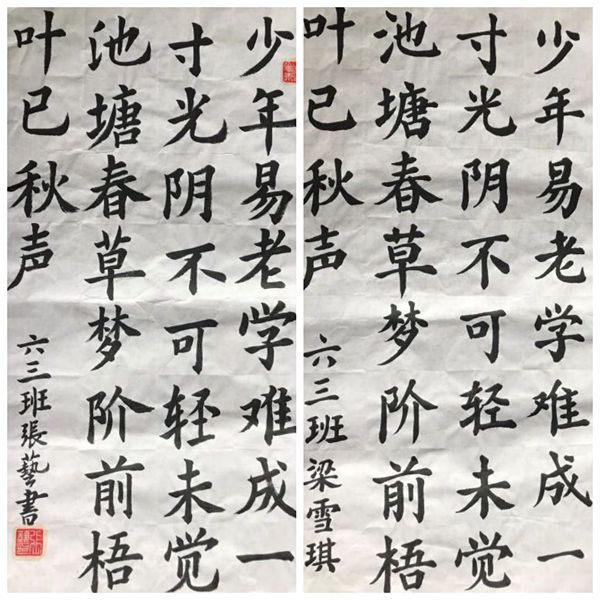 少年易老学难成一
寸光阴不可轻未觉
池塘春草梦阶前梧
叶已秋声
六三班張藝書
少年易老学难成一
寸光阴不可轻未觉
池塘春草梦阶前梧
叶已秋声
六三班梁雪琪